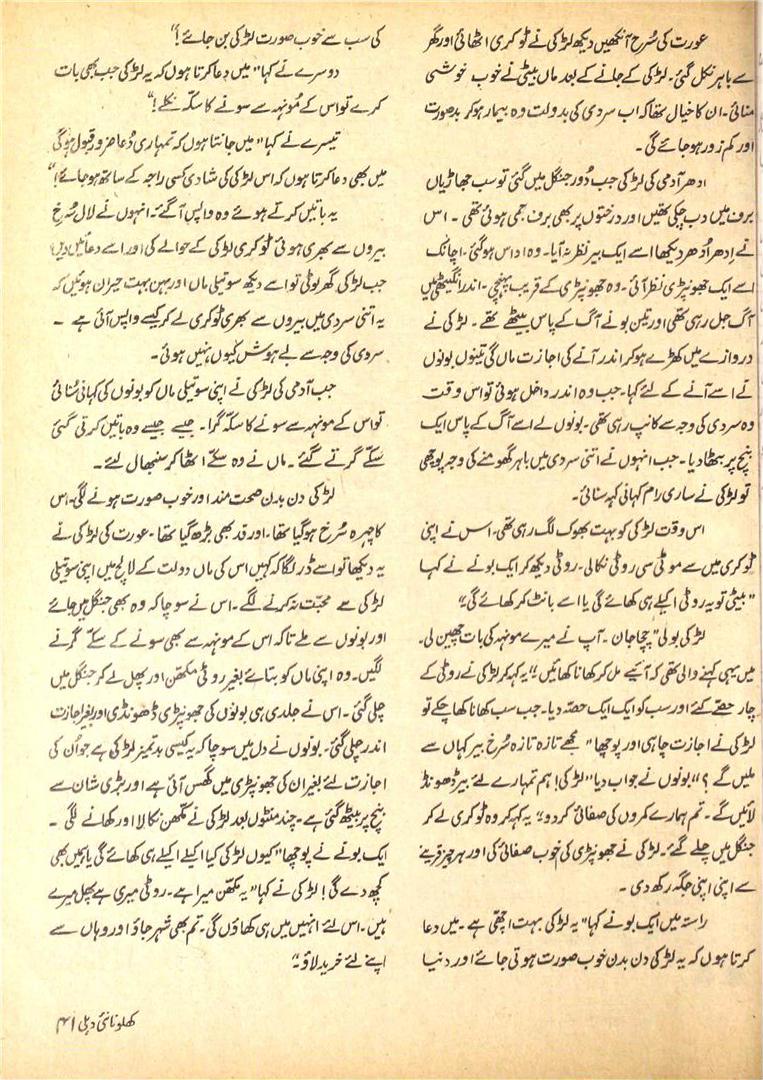 عورت کی سُرخ آنکھیں دیکھ لڑکی نے ٹوکری اٹھائی اور گھر
سے باہر نکل گئی۔ لڑکی کے جانے کے بعد ماں بیٹی نے خوب خوشی
منائی۔ ان کا خیال تھا کہ اب سردی کی بدولت وہ بیمار ہو کر بدصورت
اور کم زور ہو جائے گی۔
ادھر آدمی کی لڑکی جب دُور جنگل میں گئی تو سب جھاڑیاں
برف میں دب چکی تھیں اور درختوں پر بھی برف جمی ہوئی تھی ۔ اس
نے اِدھر اُدھر دیکھا اسے ایک بیر نظر نہ آیا۔ وہ اداس ہو گئی۔ اچانک
اسے ایک جھونپڑی نظر آئی۔ وہ جھونپڑی کے قریب پہنچی۔ اندر انگیٹھی میں
آگ جل رہی تھی اور تین بونے آگ کے پاس بیٹھے تھے ۔ لڑکی نے
دروازے میں کھڑے ہو کر اندر آنے کی اجازت مانگی تینوں بونوں
نے اسے آنے کے لئے کہا۔ جب وہ اندر داخل ہوئی تو اس وقت
وہ سردی کی وجہ سے کانپ رہی تھی۔ بونوں نے اسے آگ کے پاس ایک
بنچ پر بٹھا دیا۔ جب انہوں نے اتنی سردی میں باہر گھومنے کی وجہ پوچھی
تو لڑکی نے ساری رام کہانی کہہ سنائی۔
اس وقت لڑکی کو بہت بھوک لگ رہی تھی۔ اس نے اپنی
ٹوکری میں سے موٹی سی روٹی نکالی۔ روٹی دیکھ کر ایک بونے نے کہا
"بیٹی تو یہ روٹی اکیلے ہی کھائے گی یا اسے بانٹ کر کھائے گی؟"
لڑکی بولی "چچا جان ۔ آپ نے میرے مونہہ کی بات چھین لی۔
میں یہی کہنے والی تھی کہ آئیے مل کر کھانا کھائیں" یہ کہہ کر لڑکی نے روٹی کے
چار حصّے کئے اور سب کو ایک ایک حصّہ دیا۔ جب سب کھانا کھا چکے تو
لڑکی نے اجازت چاہی اور پوچھا "مجھے تازہ تازہ سُرخ بیر کہاں سے
ملیں گے ؟" بونوں نے جواب دیا "لڑکی! ہم تمہارے لئے بیر ڈھونڈ
لائیں گے۔ تم ہمارے کمروں کی صفائی کر دو" یہ کہہ کر وہ ٹوکری لے کر
جنگل میں چلے گئے۔ لڑکی نے جھونپڑی کی خوب صفائی کی اور ہر چیز قرینے
سے اپنی اپنی جگہ رکھ دی ۔
راستہ میں ایک بونے نے کہا "یہ لڑکی بہت اچھی ہے۔ میں دعا
کرتا ہوں کہ یہ لڑکی دن بدن خوب صورت ہوتی جائے اور دنیا
کی سب سے خوب صورت لڑکی بن جائے!"
دوسرے نے کہا "میں دعا کرتا ہوں کہ یہ لڑکی جب بھی بات
کرے تو اس کے مُونہہ سے سونے کا سکّہ نکلے!"
تیسرے نے کہا "میں جانتا ہوں کہ تمہاری دُعا ضرور قبول ہوگی
میں بھی دعا کرتا ہوں کہ اس لڑکی کی شادی کسی راجہ کے ساتھ ہو جائے!"
یہ باتیں کرتے ہوئے وہ واپس آ گئے۔ انہوں نے لال سُرخ
بیروں سے بھری ہوئی ٹوکری لڑکی کے حوالے کی اور اسے دعائیں دیں
جب لڑکی گھر لوٹی تو اسے دیکھ سوتیلی ماں اور بہن بہت حیران ہوئیں کہ
یہ اتنی سردی میں بیروں سے بھری ٹوکری لے کر کیسے واپس آئی ہے ۔
سردی کی وجہ سے بے ہوش کیوں نہیں ہوئی۔
جب آدمی کی لڑکی نے اپنی سوتیلی ماں کو بونوں کی کہانی سُنائی
تو اس کے مونہہ سے سونے کا سکّہ گرا۔ جیسے جیسے وہ باتیں کرتی گئی
سکّے گرتے گئے۔ ماں نے وہ سکّے اٹھا کر سنبھال لئے۔
لڑکی دن بدن صحت مند اور خوب صورت ہونے لگی۔ اس
کا چہرہ سُرخ ہو گیا تھا۔ اور قد بھی بڑھ گیا تھا۔ عورت کی لڑکی نے
یہ دیکھا تو اسے ڈر لگا کہ کہیں اس کی ماں دولت کے لالچ میں اپنی سوتیلی
لڑکی سے محبّت نہ کرنے لگے۔ اس نے سوچا کہ وہ بھی جنگل میں جائے
اور بونوں سے ملے تاکہ اس کے مونہہ سے بھی سونے کے سکّے گرنے
لگیں۔ وہ اپنی ماں کو بتائے بغیر روٹی مکھن اور پھل لے کر جنگل میں
چلی گئی۔ اس نے جلدی ہی بونوں کی جھونپڑی ڈھونڈی اور بغیر اجازت
اندر چلی گئی۔ بونوں نے دل میں سوچا کہ یہ کیسی بدتمیز لڑکی ہے جو اُن کی
اجازت لئے بغیر ان کی جھونپڑی میں گھس آئی ہے اور بڑی شان سے
بنچ پر بیٹھ گئی ہے۔ چند منٹوں بعد لڑکی نے مکھن نکالا اور کھانے لگی ۔
ایک بونے نے پوچھا "کیوں لڑکی کیا اکیلے اکیلے ہی کھائے گی یا ہمیں بھی
کچھ دے گی! لڑکی نے کہا "یہ مکھن میرا ہے۔ روٹی میری ہے پھل میرے
ہیں۔ اس لئے انہیں میں ہی کھاؤں گی۔ تم بھی شہر جاؤ اور وہاں سے
اپنے لئے خرید لاؤ۔"
کھلونا نئی دہلی ۴۱